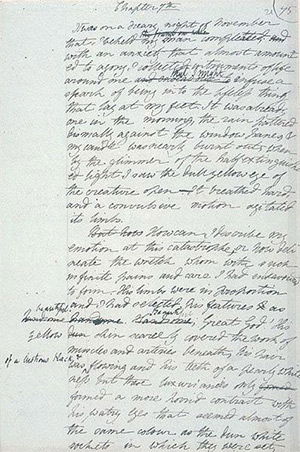 Chapter 7th
It was on a dreary night of November
that I beheld my man compleated and
with an anxiety that almost amount
ed to agony, I collect instruments of life
around me and that I might
endeavour to infuse a
spark of being into the lifeless thing
that lay at my feet. It was already
one in the morning, the rain pattered
dismally against the window panes, &
my candle was nearly burnt out, when
by the glimmer of the half extinguish
ed light I saw the dull yellow eye of
the creature open. It breathed hard,
and a convulsive motion agitated
its limbs.
But how How can I describe my
emotion at this catastrophe; or how deli
neate the wretch whom with such
infinite pains and care I had endeavoured
to form. His limbs were in proportion
and I had selected his features as
beautiful
handsome handsome. Beautiful; Great God! His
yellow dun skin scarcely covered the work of
muscles and arteries beneath; his hair
of a lustrous black &
was flowing and his teeth of a pearly white
ness but these luxuriancies only formed
formed a more horrid contrast with
his watry eyes that seemed almost of
the same colour as the dun white
sockets in which they were set,